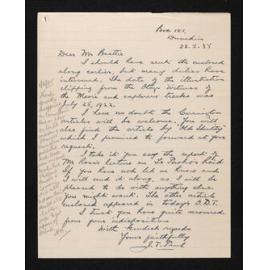 Box 181,
Dunedin
28.2.35
Dear Mr Beattie
I should have sent the enclosed
along earlier, but many duties have
intervened. The date of the illustration
clipping from the Otago Witness of
the Maori and explorers tracks was
July 25, 1922.
I have no doubt the Correction
articles will be welcome. You will
also find the article by Old Identity
which I promised to forward at your
request.
I take it you saw the report of
Mr
lecture on
If you have not let me know and
I will send it along, as I will be
pleased to do with anything else
you might want. The other article
enclosed appeared in today's O.D.T.
I trust you have quite recovered
from your indisposition
With kindest regards
Yours faithfully
J. T. Paul